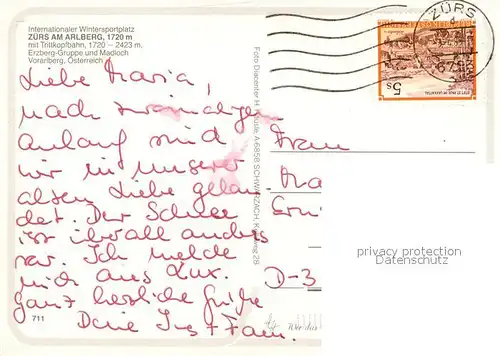 Internationaler Wintersportplatz
ZÜRS AM ARLBERG, 1720 m
mit Trittkopfbahn, 1720 – 2423 m.
Erzberg-Gruppe und Madloch
Vorarlberg, Österreich
Liebe Maria,
nach zweimaligem
Anlauf sind
wir in unserer
alten Liebe gelan
det. Der Schnee
ist überall anders
rar. Ich melde
mich aus Lux.
Ganz herzliche Grüße
Deine Inst Fam.
711
Foto Diacenter H. Krausle, A-6858 SCHWARZACH,
2B
ZÜRS
5s
Frau
Ma
D-3
privacy protection
Datenschutz